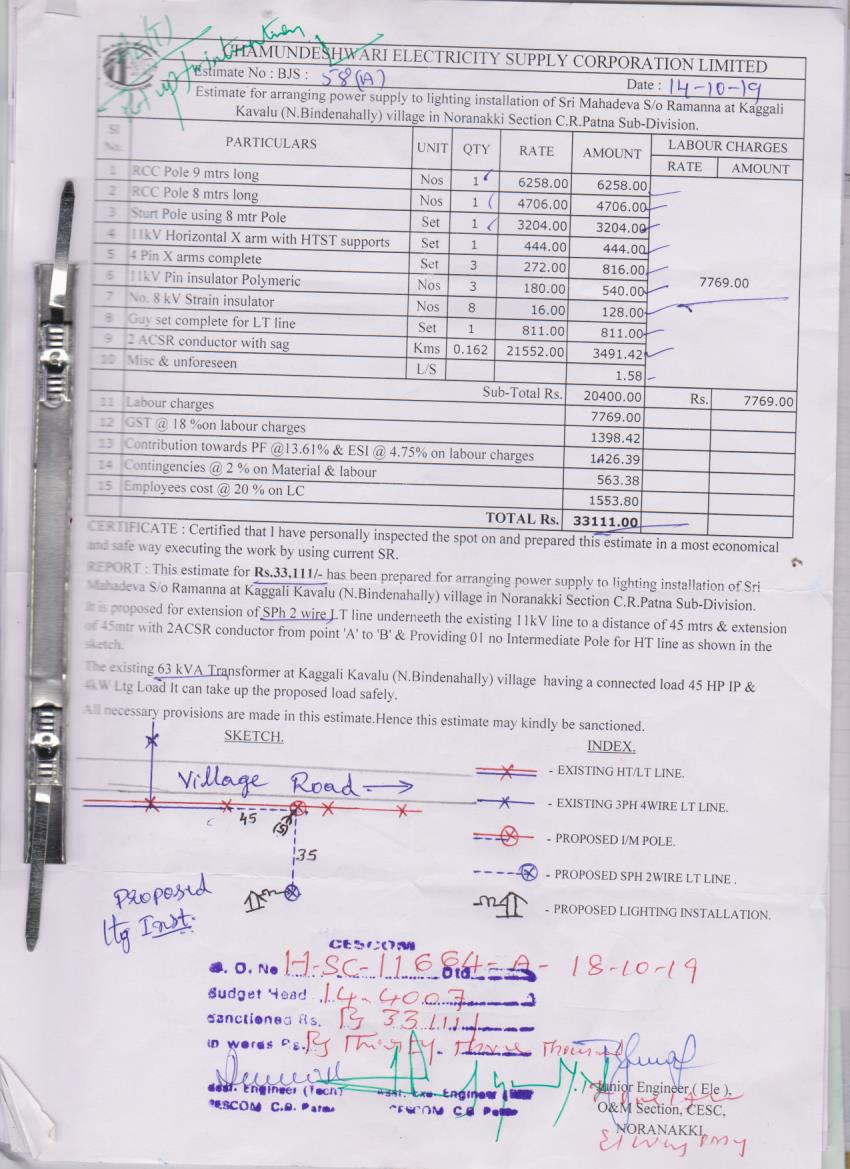 CHAMUNDESHWARI ELECTRICITY SUPPLY CORPORATION LIMITED
Estimate No : BJS : 58(A) Date : 14-10-19
Estimate for arranging power supply to lighting installation of Sri Mahadeva S/o Ramanna at Kaggali
Kavalu (N.Bindenahally) village in Noranakki Section C.R.Patna Sub-Division.
Sl No. PARTICULARS UNIT QTY RATE AMOUNT LABOUR CHARGES
RATE AMOUNT
1 RCC Pole 9 mtrs long Nos 1 6258.00 6258.00
2 RCC Pole 8 mtrs long Nos 1 4706.00 4706.00
3 Sturt Pole using 8 mtr Pole Set 1 3204.00 3204.00
4 11kV Horizontal X arm with HTST supports Set 1 444.00 444.00
5 4 Pin X arms complete Set 3 272.00 816.00
6 11kV Pin insulator Polymeric Nos 3 180.00 540.00 7769.00
7 No. 8 kV Strain insulator Nos 8 16.00 128.00
8 Guy set complete for LT line Set 1 811.00 811.00
9 2 ACSR conductor with sag Kms 0.162 21552.00 3491.42
10 Misc & unforeseen L/S 1.58
Sub-Total Rs. 20400.00 Rs. 7769.00
11 Labour charges 7769.00
12 GST @ 18 %on labour charges 1398.42
13 Contribution towards PF @13.61% & ESI @ 4.75% on labour charges 1426.39
14 Contingencies @ 2 % on Material & labour 563.38
15 Employees cost @ 20 % on LC 1553.80
TOTAL Rs. 33111.00
CERTIFICATE : Certified that I have personally inspected the spot on and prepared this estimate in a most economical
and safe way executing the work by using current SR.
REPORT : This estimate for Rs.33,111/- has been prepared for arranging power supply to lighting installation of Sri
Mahadeva S/o Ramanna at Kaggali Kavalu (N.Bindenahally) village in Noranakki Section C.R.Patna Sub-Division.
It is proposed for extension of SPh 2 wire LT line underneeth the existing 11kV line to a distance of 45 mtrs & extension
of 45mtr with 2ACSR conductor from point 'A' to 'B' & Providing 01 no Intermediate Pole for HT line as shown in the
sketch.
The existing 63 kVA Transformer at Kaggali Kavalu (N.Bindenahally) village having a connected load 45 HP IP &
4kW Ltg Load It can take up the proposed load safely.
All necessary provisions are made in this estimate.Hence this estimate may kindly be sanctioned.
SKETCH.
INDEX.
Village Road
45
(S)
35
Proposed
Ltg Inst.
- EXISTING HT/LT LINE.
- EXISTING 3PH 4WIRE LT LINE.
- PROPOSED I/M POLE.
- PROPOSED SPH 2WIRE LT LINE .
- PROPOSED LIGHTING INSTALLATION.
CESCOM
O. No H-SC-11664-A- Dtd. 18-10-19
Budget Head 14-4007
Sanctioned Rs. Rs 33111
in words Rs. Rs Thirty Three Thousand
Asst. Engineer (Tech) Asst. Exe. Engineer
CESCOM C.R. Patna CESCOM C.R. Patna
Junior Engineer,( Ele ),
O&M Section, CESC,
NORANAKKI